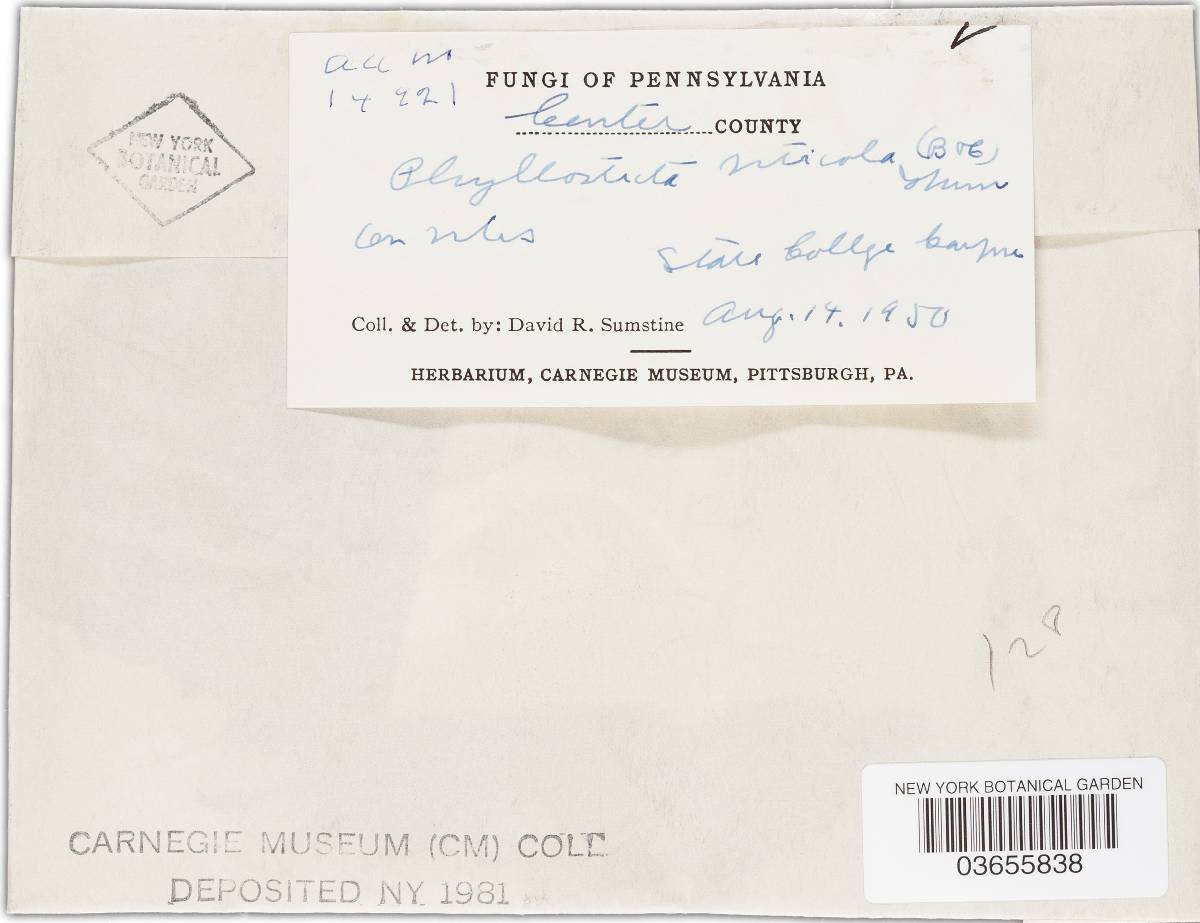 acc no
14221
FUNGI OF PENNSYLVANIA
Center COUNTY
Phyllosticta viticola (B & C) Thum
on vitis
State College Campus
Coll. & Det. by: David R. Sumstine Aug. 14. 1950
HERBARIUM, CARNEGIE MUSEUM, PITTSBURGH, PA.
NEW YORK
BOTANICAL
GARDEN
128
NEW YORK BOTANICAL GARDEN
03655838
CARNEGIE MUSEUM (CM) COLL.
DEPOSITED NY 1981